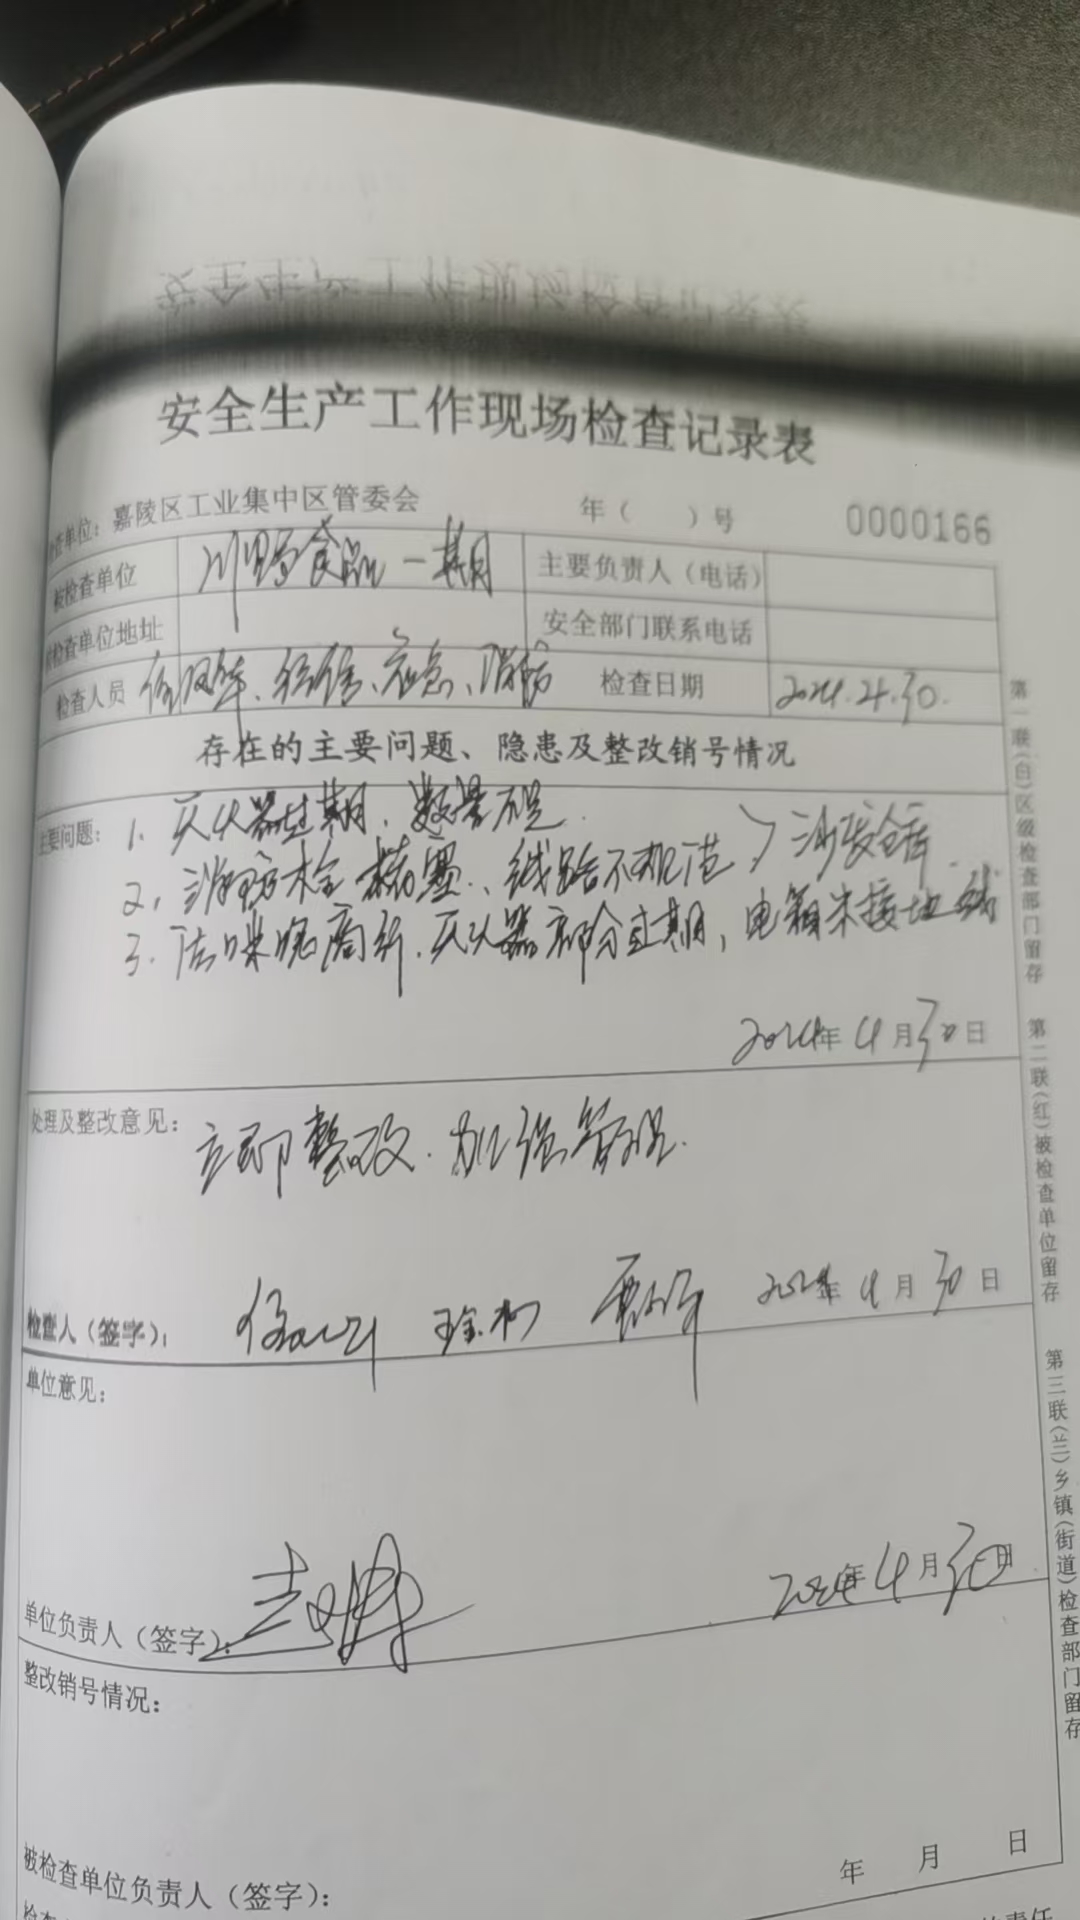 安全生产工作现场检查记录表
单位：嘉陵区工业集中区管委会 年（ ）号 0000166
被检查单位 川野食品一期 主要负责人（电话）
检查单位地址 安全部门联系电话
检查人员 应急、消防 检查日期 2024.4.30.
存在的主要问题、隐患及整改销号情况
主要问题：1. 灭火器过期、数量不足.
2. 消防栓 线路不规范 > 沙发仓库.
3. 灭火器部分过期，电箱未接地线
2024年4月30日
处理及整改意见：立即整改.加强管理.
检查人（签字）： 2024年4月30日
单位意见：
单位负责人（签字）： 2024年4月30日
整改销号情况：
年 月 日
被检查单位负责人（签字）：
第一联（白）区级检查部门留存 第二联（红）被检查单位留存 第三联（兰）乡镇（街道）检查部门留存